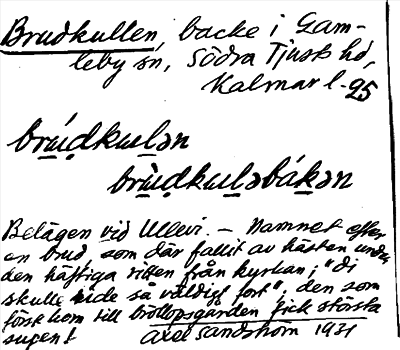 Brudkullen, backe i Gam-
leby sn, Södra Tjust hd,
Kalmar l. 25
brúdkuļən
brùdkuļəbákən
Belägen vid Ullevi. – Namnet efter
en brud, som där fallit av hästen under
den häftiga ritten från kyrkan; "di
skulle ride så väldigt fort"; den som
först kom till bröllopsgården fick största
supen!
Axel Sandström 1931